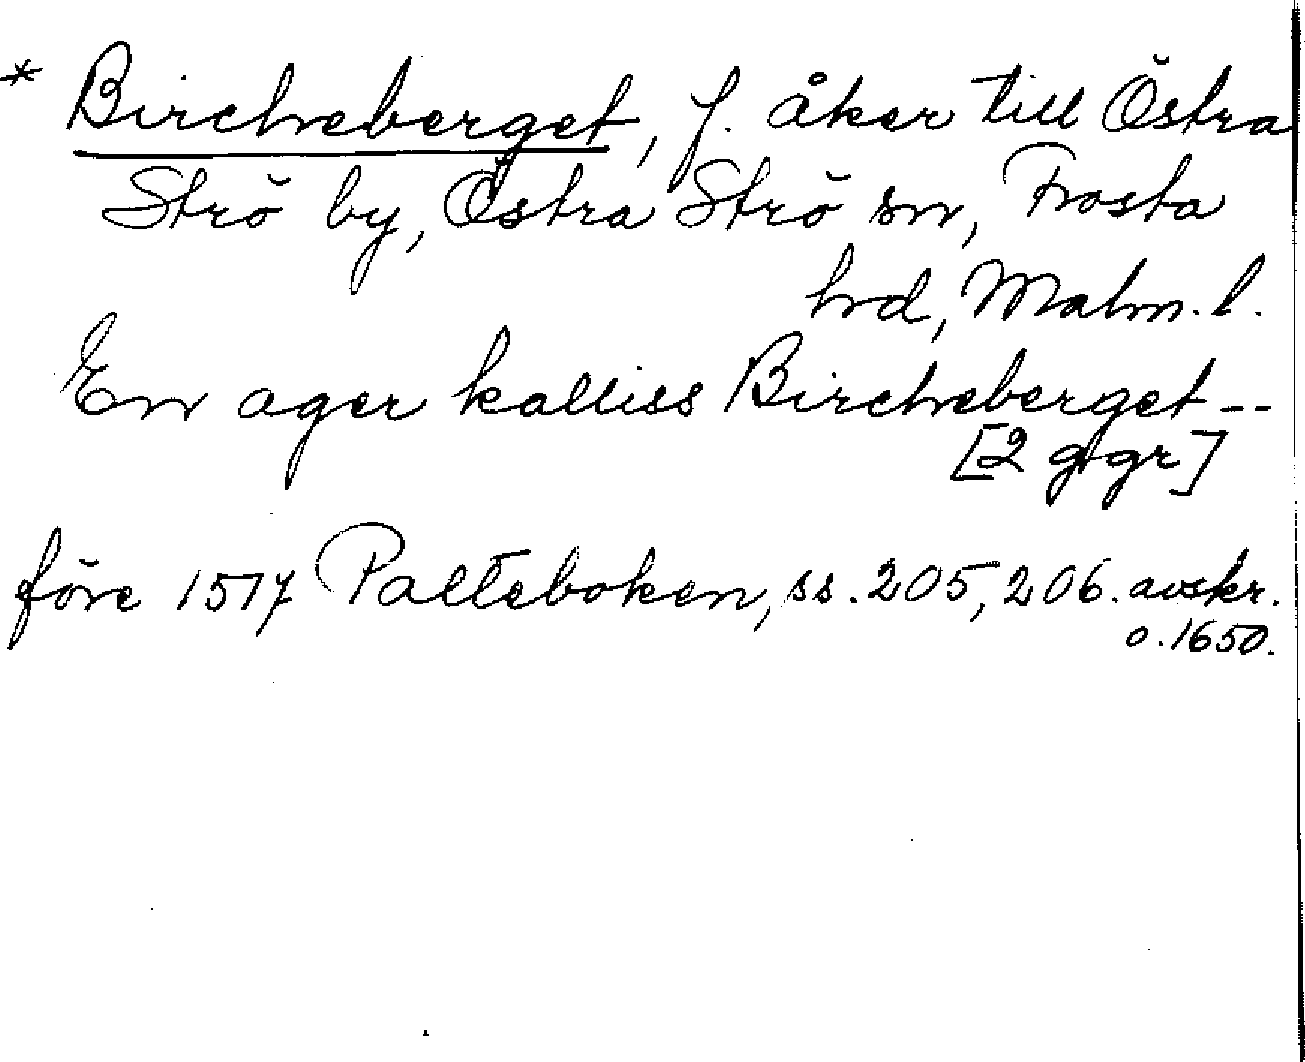 * Bircheberget, f. åker till Östra
Strö by, Östra Strö sn, Frosta
hd, Malm. l.
En ager kalliss Bircheberget --
[2 ggr]
före 1517 Palteboken, ss. 205, 206. avskr.
o. 1650.